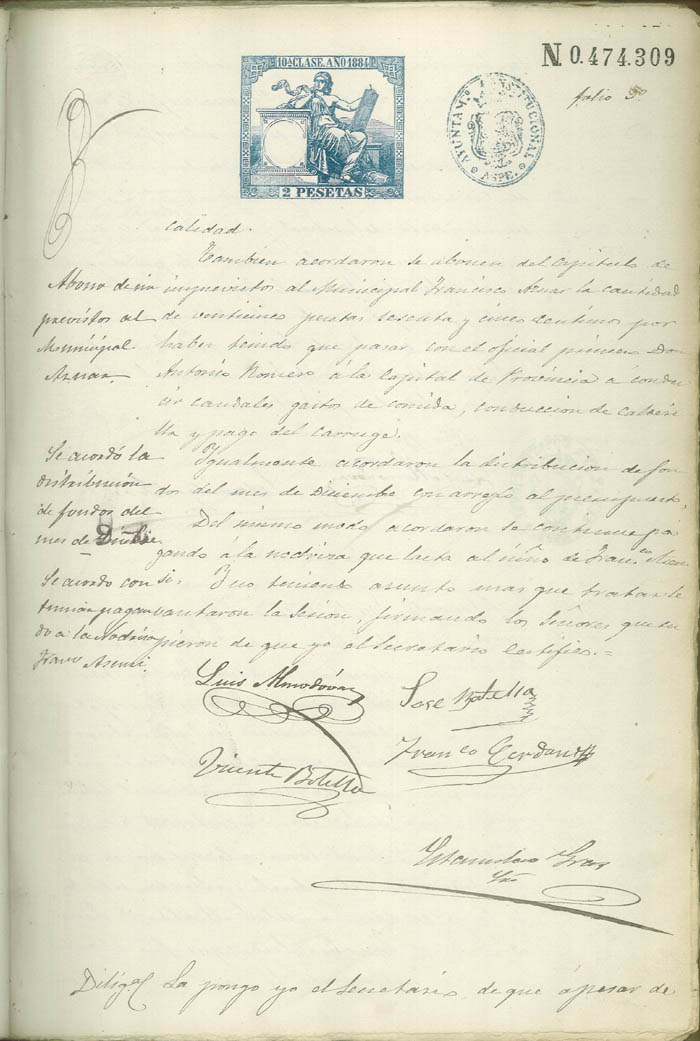 10ª CLASE. AÑO 1884
2 PESETAS
N 0.474.309
AYUNTAMTO. CONSTITUCIONAL
ASPE.
folio 5º
calidad.
Tambien acordaron se abonen del Capitulo de
imprevistos al Municipal Francisco Aznar la cantidad
de venticinco pesetas sesenta y cinco centimos por
haber tenido que pasar con el oficial primero Don
Antonio Romero á la Capital de Provincia á condu
cir caudales gastos de comida, conduccion de caldere
lla y pago del carruage.
Abono de im
previstos al
Municipal
Aznar
Igualmente acordaron la distribucion de fon
dos del mes de Diciembre con arreglo al presupuesto.
Se acordó la
distribución
de fondos del
mes de
Del mismo modo acordaron se continue pa
gando á la nodriza que lacta al niño de Franco.
si. Y no teniendo asunto mas que tratar le
vantaron la Sesion, firmando los Señores que su
pieron de que yo el Secretario certifico.=
Se acordo con
tinuar pagan
do á la Nodriza
Luis Almodóvar
Jose Botella
Vicente Botella
Franco Cerdan
Estanislao Gras
Srio
Diligª La pongo yo el Secretario de que á pesar de